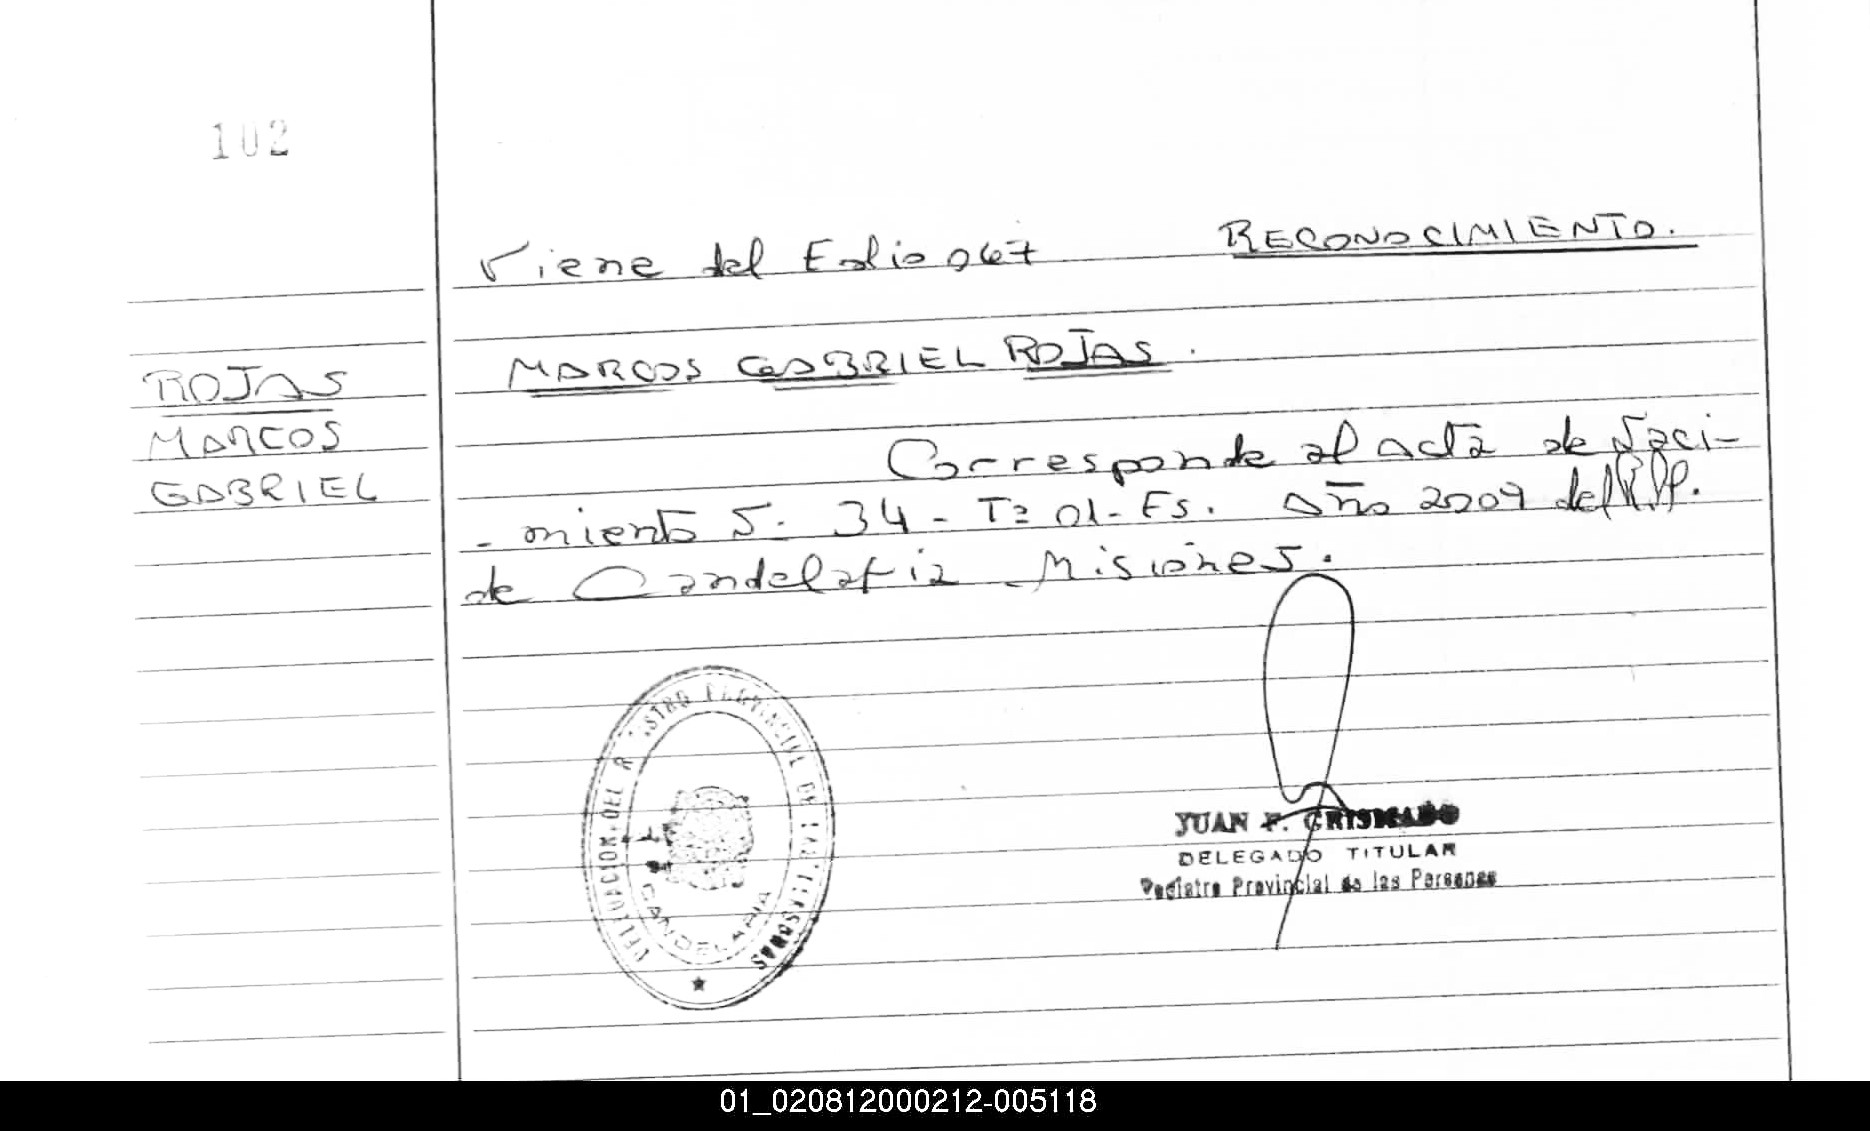 102
Viene del Folio 067 RECONOCIMIENTO.
ROJAS
MARCOS
GABRIEL
MARCOS GABRIEL ROJAS.
Corresponde al acta de Naci-
-miento N: 34 - Tº 01 - Es. Año 2009 del R.P.P.
de Candelaria - Misiones.
DELEGACION DEL REGISTRO PROVINCIAL DE LAS PERSONAS
CANDELARIA
JUAN F.
DELEGADO TITULAR
Registro Provincial de las Personas
01_020812000212-005118